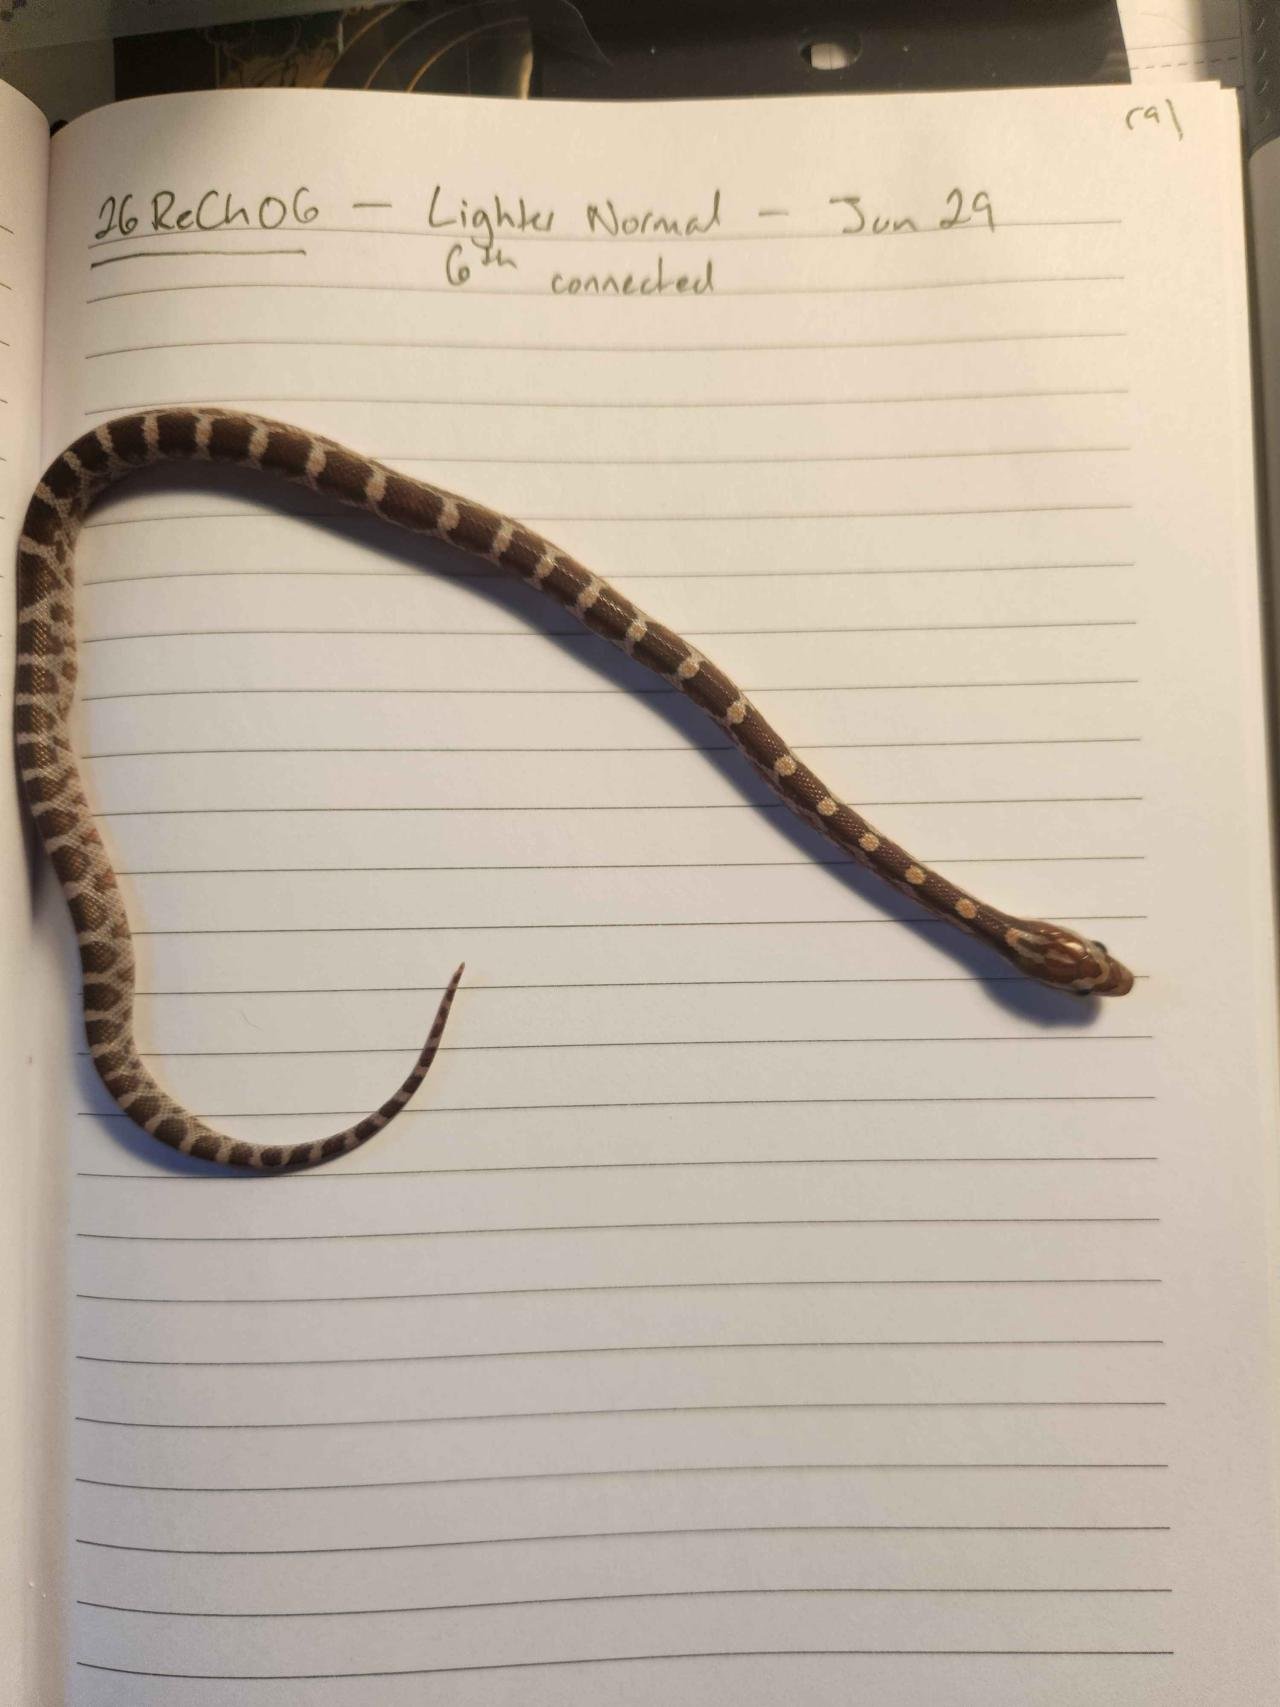 26ReCh06 — Lighter Normal — Jun 29
6th connected